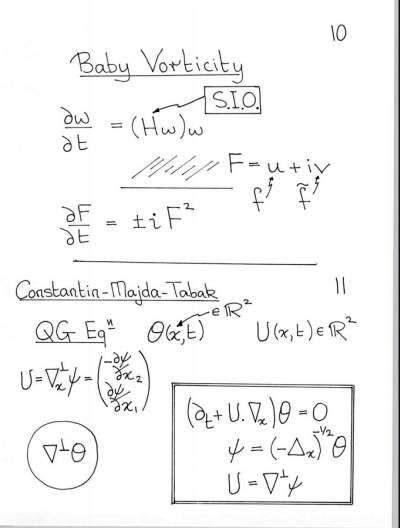 10
Baby Vorticity
S.I.O.
∂w/∂t = (Hw)w
F = u + iv
f f̃
∂F/∂t = ±i F²
Constantin-Majda-Tabak 11
QG Eqⁿ θ(x,t) ∈ ℝ² U(x,t) ∈ ℝ²
U = ∇ₓ^⊥ψ = (-∂ψ/∂x₂, ∂ψ/∂x₁)
(∂ₜ + U.∇ₓ)θ = 0
ψ = (-Δₓ)^(-1/2) θ
U = ∇^⊥ψ
∇^⊥θ